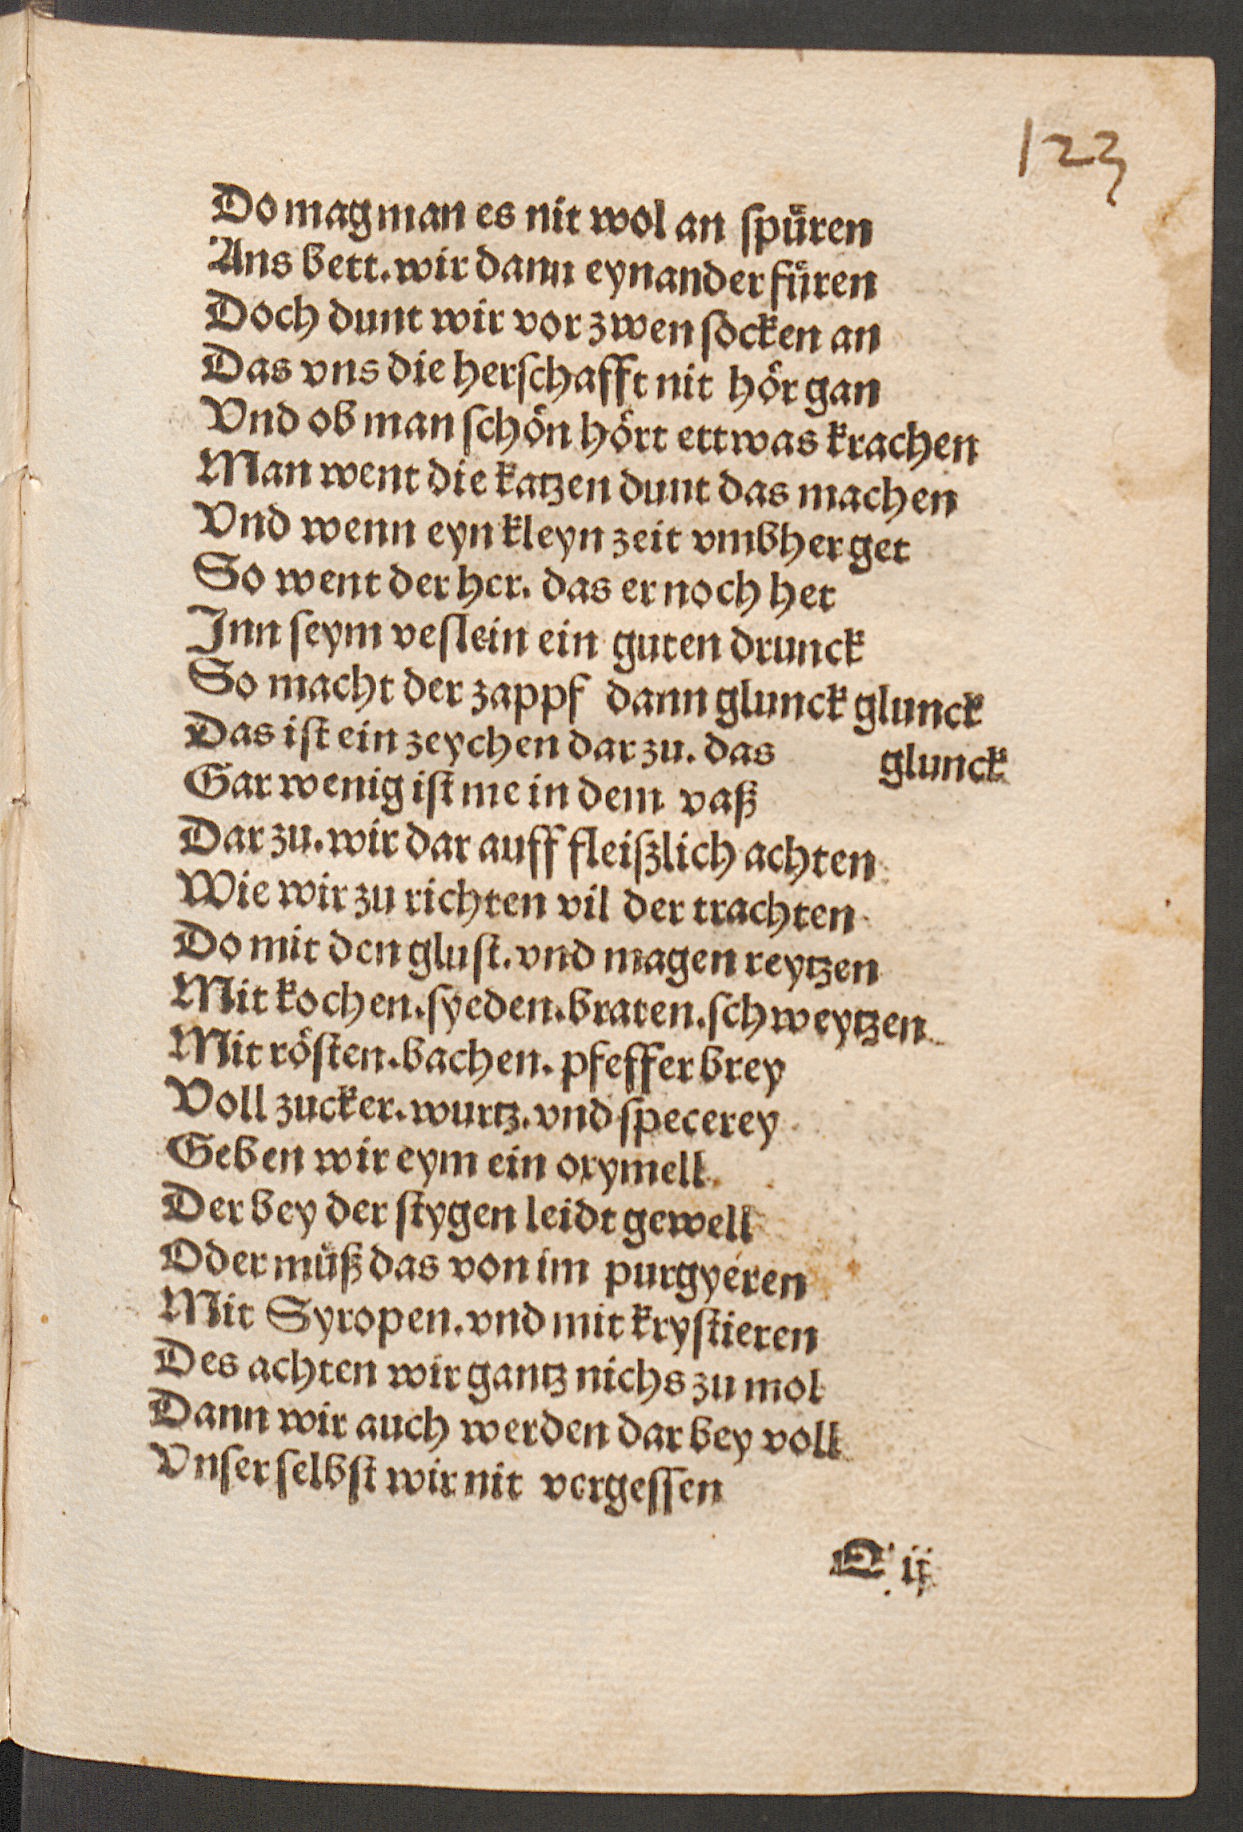 123
Do mag man es nit wol an spüren
Ans bett. wir dann eynander füren
Doch dunt wir vor zwen socken an
Das vns die herschafft nit hör gan
Vnd ob man schön hört ettwas krachen
Man went die katzen dunt das machen
Vnd wenn eyn kleyn zeit vmbher get
So went der her. das er noch het
Inn seym veslein ein guten drunck
So macht der zappf dann glunck glunck
Das ist ein zeychen dar zu. das glunck
Gar wenig ist me in dem vaß
Dar zu. wir dar auff fleißlich achten
Wie wir zu richten vil der trachten
Do mit den glust. vnd magen reytzen
Mit kochen. syeden. braten. schweytzen
Mit rösten. bachen. pfeffer brey
Voll zucker. wurtz. vnd specerey
Geben wir eym ein oxymell
Der bey der stygen leidt gewell
Oder müß das von im purgyeren
Mit Syropen. vnd mit krystieren
Des achten wir gantz nichs zu mol
Dann wir auch werden dar bey voll
Vnser selbst wir nit vergessen
Q ij